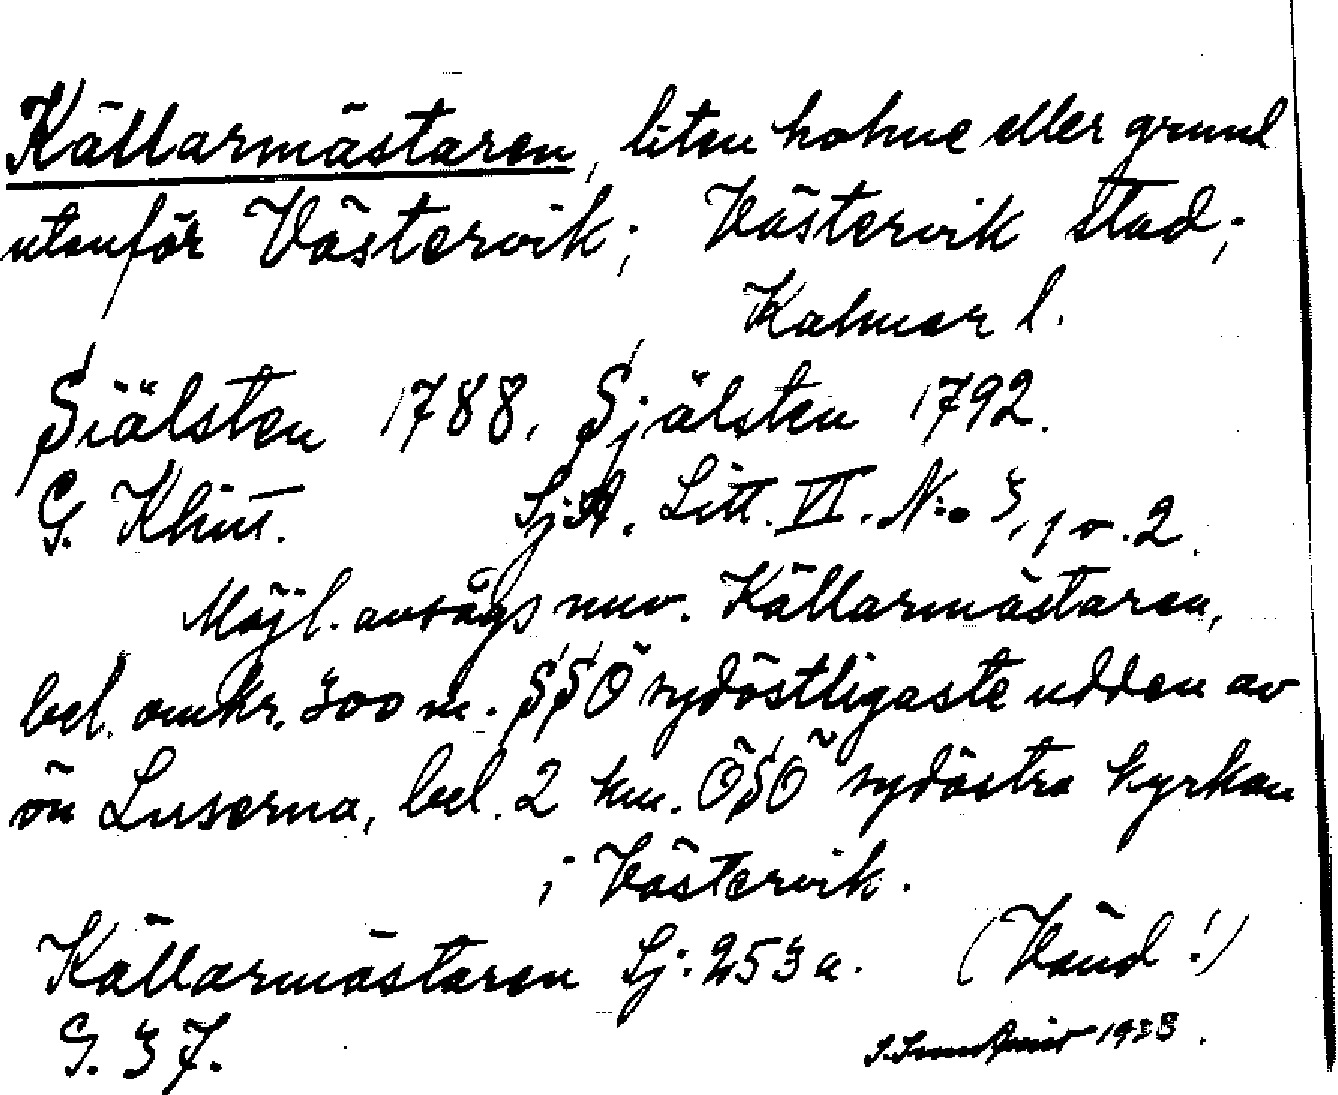 Källarmästaren, liten holme eller grund
utanför Västervik; Västervik stad;
Kalmar l.
Siälsten 1788. Själsten 1792.
G. Klint. SjA. Litt. VI. N:o 3, 1 o. 2.
Möjl. avsågs nuv. Källarmästaren,
bel. omkr. 300 m. SSÖ sydöstligaste udden av
ön Luserna, bel. 2 km. ÖSÖ sydöstra kyrkan
i Västervik.
Källarmästaren Sj. 253 a. (Vänd!)
G. 37. 1933.